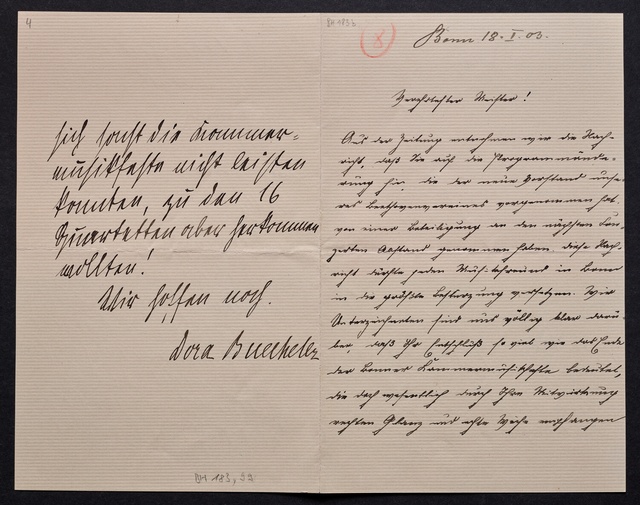 4
sich sonst die Kammer-
musikfeste nicht leisten
konnten, zu den 16
Quartetten aber herkommen
wollten!
Wir hoffen noch.
Dora Buecheler
BH 183, 32
BH 183
8
Bonn 18. I. 03.
Verehrtester Meister!
Aus der Zeitung entnehmen wir die Nach-
richt, daß Sie auf die Programmände-
rung hin, die der neue Vorstand unse-
res Beethovenvereines vorgenommen hat,
von einer Beteiligung an den nächsten Kon-
zerten Abstand genommen haben. Diese Nach-
richt dürfte jeden Musikfreund in Bonn
in die größte Bestürzung versetzen. Wir
Unterzeichneten sind uns völlig klar darü-
ber, daß Ihr Entschluß so viel wie das Ende
der Bonner Kammermusikfeste bedeutet,
die doch wesentlich durch Ihre Mitwirkung
rechten Glanz und echte Weihe empfangen